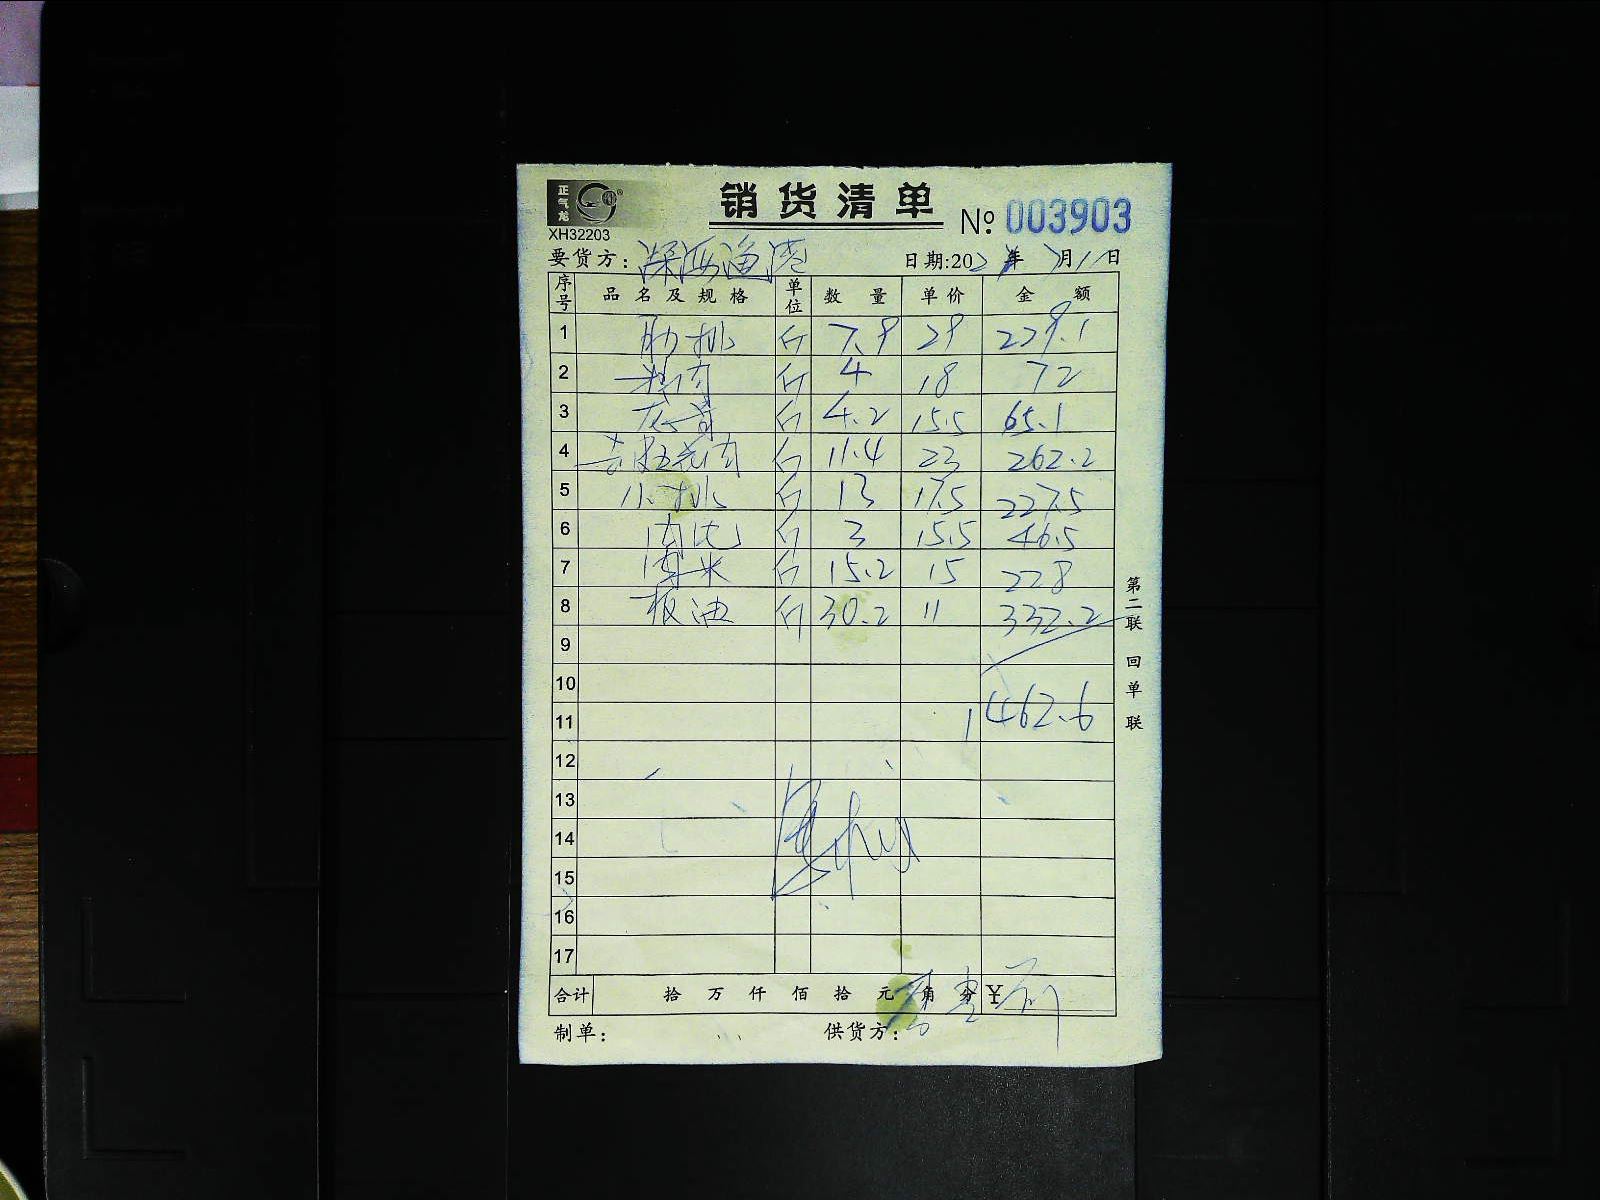 正气龙
XH32203
销货清单
№ 003903
要货方：深西渔港
日期:202 年 7月11日
序号 品名及规格 单位 数量 单价 金额
1 肋排 斤 7.9 29 229.1
2 精肉 斤 4 18 72
3 斤 4.2 15.5 65.1
4 去皮 肉 斤 11.4 23 262.2
5 小排 斤 13 17.5 227.5
6 肉 斤 3 15.5 46.5
7 斤 15.2 15 228
8 板油 斤 30.2 11 332.2
9
10
11 1462.6
12
13
14
15
16
17
合计 拾 万 仟 佰 拾 元 角 分 ¥
制单：
供货方：
第二联 回单联